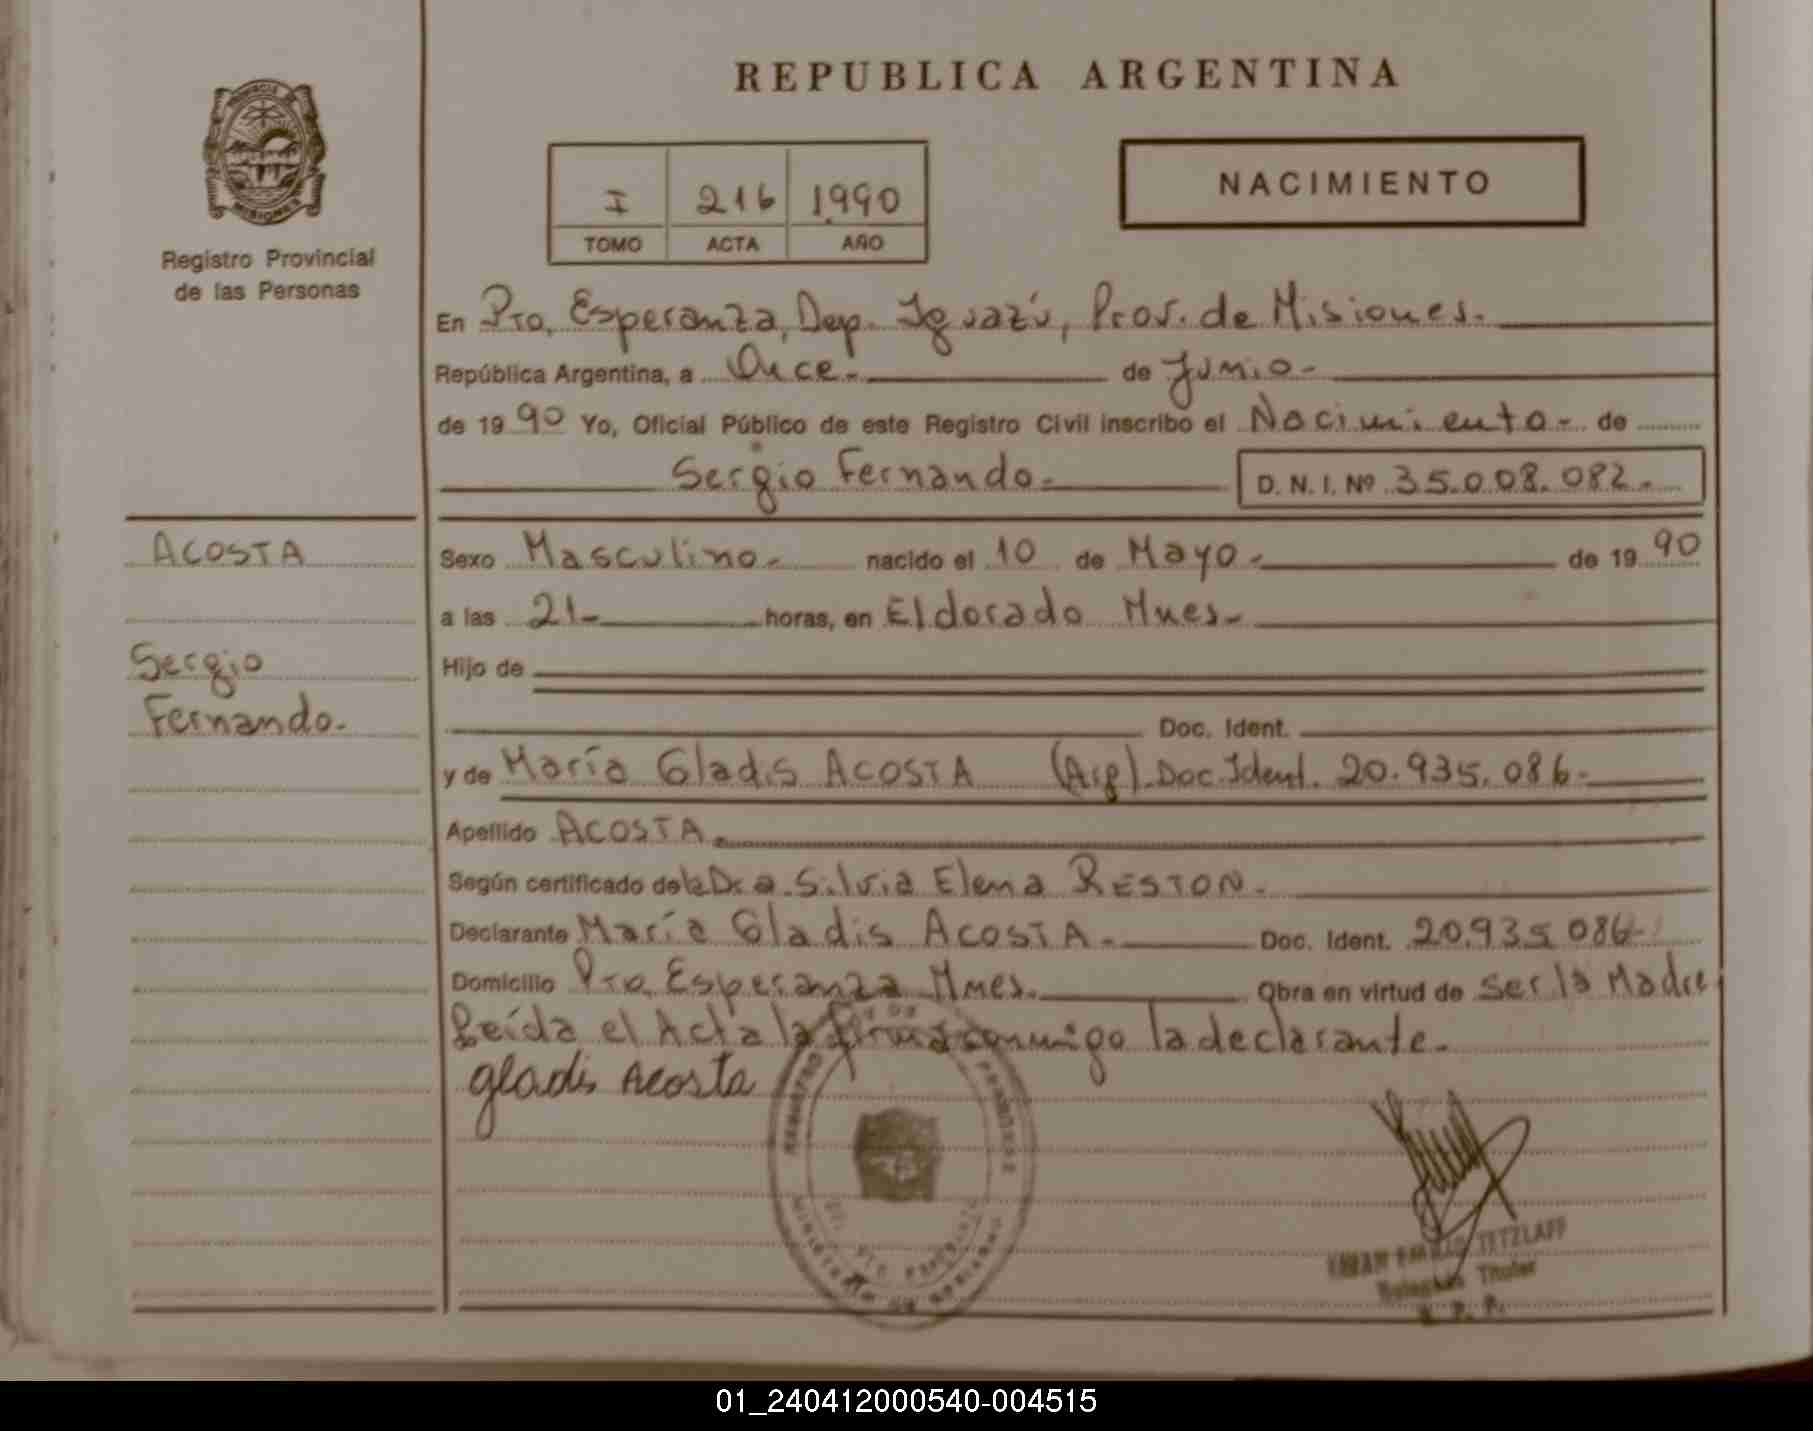 REPUBLICA ARGENTINA
NACIMIENTO
I 216 1.990
TOMO ACTA AÑO
MISIONES
Registro Provincial
de las Personas
En Pto. Esperanza, Dep. Iguazú, Prov. de Misiones.
República Argentina, a Once.- de Junio-
de 19 90 Yo, Oficial Público de este Registro Civil inscribo el Nacimiento- de
Sergio Fernando- D. N. I. Nº 35.008.082.-
ACOSTA
Sergio
Fernando.
Sexo Masculino- nacido el 10 de Mayo- de 19 90
a las 21- horas, en Eldorado Mnes-
Hijo de
Doc. Ident.
y de María Gladis ACOSTA (Arg). Doc. Ident. 20.935.086-
Apellido ACOSTA.
Según certificado de la Dra. Silvia Elena RESTON.
Declarante María Gladis ACOSTA.- Doc. Ident. 20.935 086-
Domicilio Pto. Esperanza Mnes. Obra en virtud de ser la Madre
Leída el Acta la firma conmigo la declarante.
gladis Acosta
TETZLAFF
Titular
R. P. P.
01_240412000540-004515